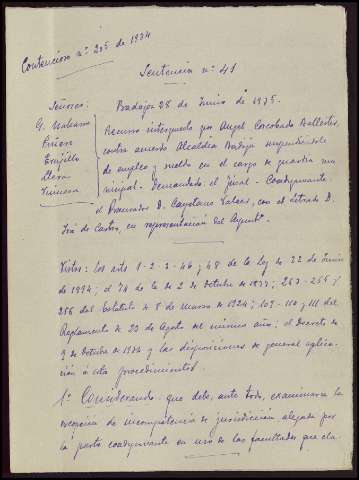 Contencioso nº 205 de 1934
Sentencia nº 41
Señores:
G. 
Piñero
Trujillo
Llera
Badajoz 28 de Junio de 1935.
Recurso interpuesto por Angel Corcobado Ballester,
contra acuerdo Alcaldia Badajoz suspendiendole
de empleo y sueldo en el cargo de guardia mu
nicipal. Demandado: el fiscal. Coadyuvante:
el Procurador D. Cayetano con el letrado D.
José de Castro, en representación del Aymtº.
Vistos: los arts 1-2-3-46 y 48 de la Ley de 22 Junio
de 1894; el 74 de la de 2 de Octubre de 1877; 253-255 y
256 del Estatuto de 8 de Marzo de 1924; 109-110 y 111 del
Reglamento de 23 de Agosto del mismo año; el Decreto de
9 de Octubre de 1934 y las disposiciones de general aplica-
ción a este procedimiento.
1º Considerando: que debe, ante todo, examinarse la
excepción de incompetencia de jurisdicción alegada por
la parte coadyuvante en uso de las facultades que cla-